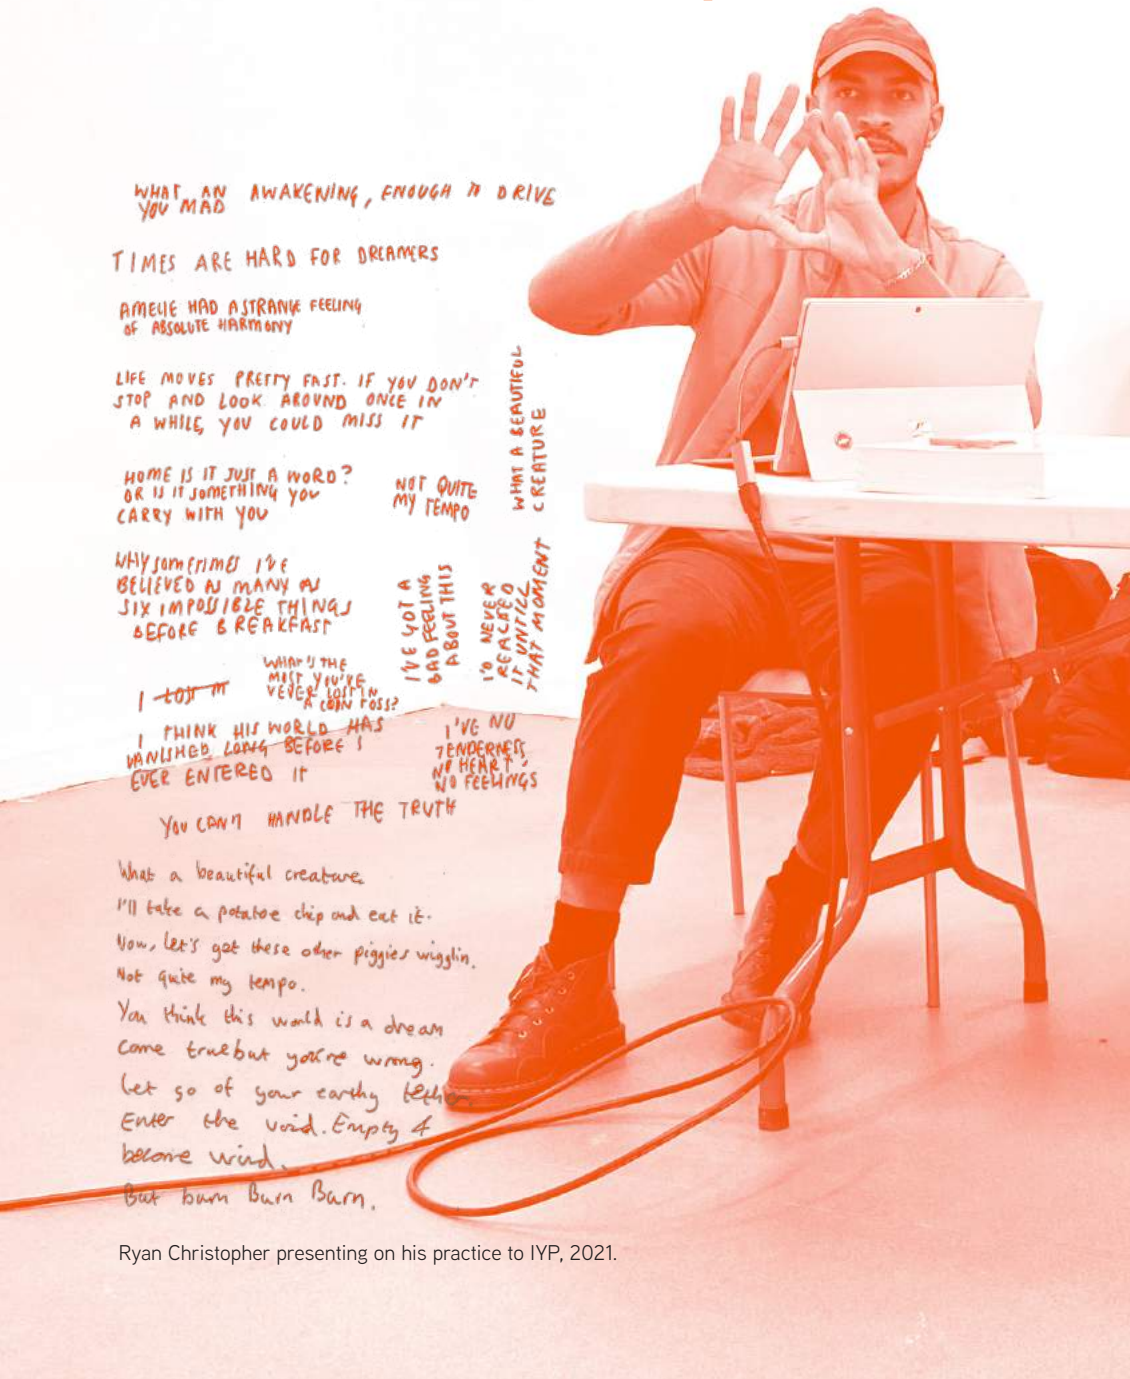 WHAT AN AWAKENING, ENOUGH TO DRIVE
YOU MAD
TIMES ARE HARD FOR DREAMERS
AMELIE HAD A STRANGE FEELING
OF ABSOLUTE HARMONY
LIFE MOVES PRETTY FAST. IF YOU DON'T
STOP AND LOOK AROUND ONCE IN
A WHILE, YOU COULD MISS IT
WHAT A BEAUTIFUL
CREATURE
HOME IS IT JUST A WORD?
OR IS IT SOMETHING YOU
CARRY WITH YOU
NOT QUITE
MY TEMPO
WHY SOMETIMES I'VE
BELIEVED AS MANY AS
SIX IMPOSSIBLE THINGS
BEFORE BREAKFAST
I'VE GOT A
BAD FEELING
ABOUT THIS
I'D NEVER
IT UNTILL
THAT MOMENT
I LOST M
WHAT'S THE
MOST YOU'VE
VEVER LOST IN
A COIN TOSS?
I THINK HIS WORLD HAS
VANISHED LONG BEFORE I
EVER ENTERED IT
I'VE NO
TENDERNESS,
NO HEART,
NO FEELINGS
YOU CAN'T HANDLE THE TRUTH
What a beautiful creature.
I'll take a potatoe chip and eat it.
Now, let's get these other piggies wigglin.
Not quite my tempo.
You think this world is a dream
come true but you're wrong.
Let go of your earthy tether.
Enter the void. Empty &
become wind.
But burn Burn Burn.
Ryan Christopher presenting on his practice to IYP, 2021.